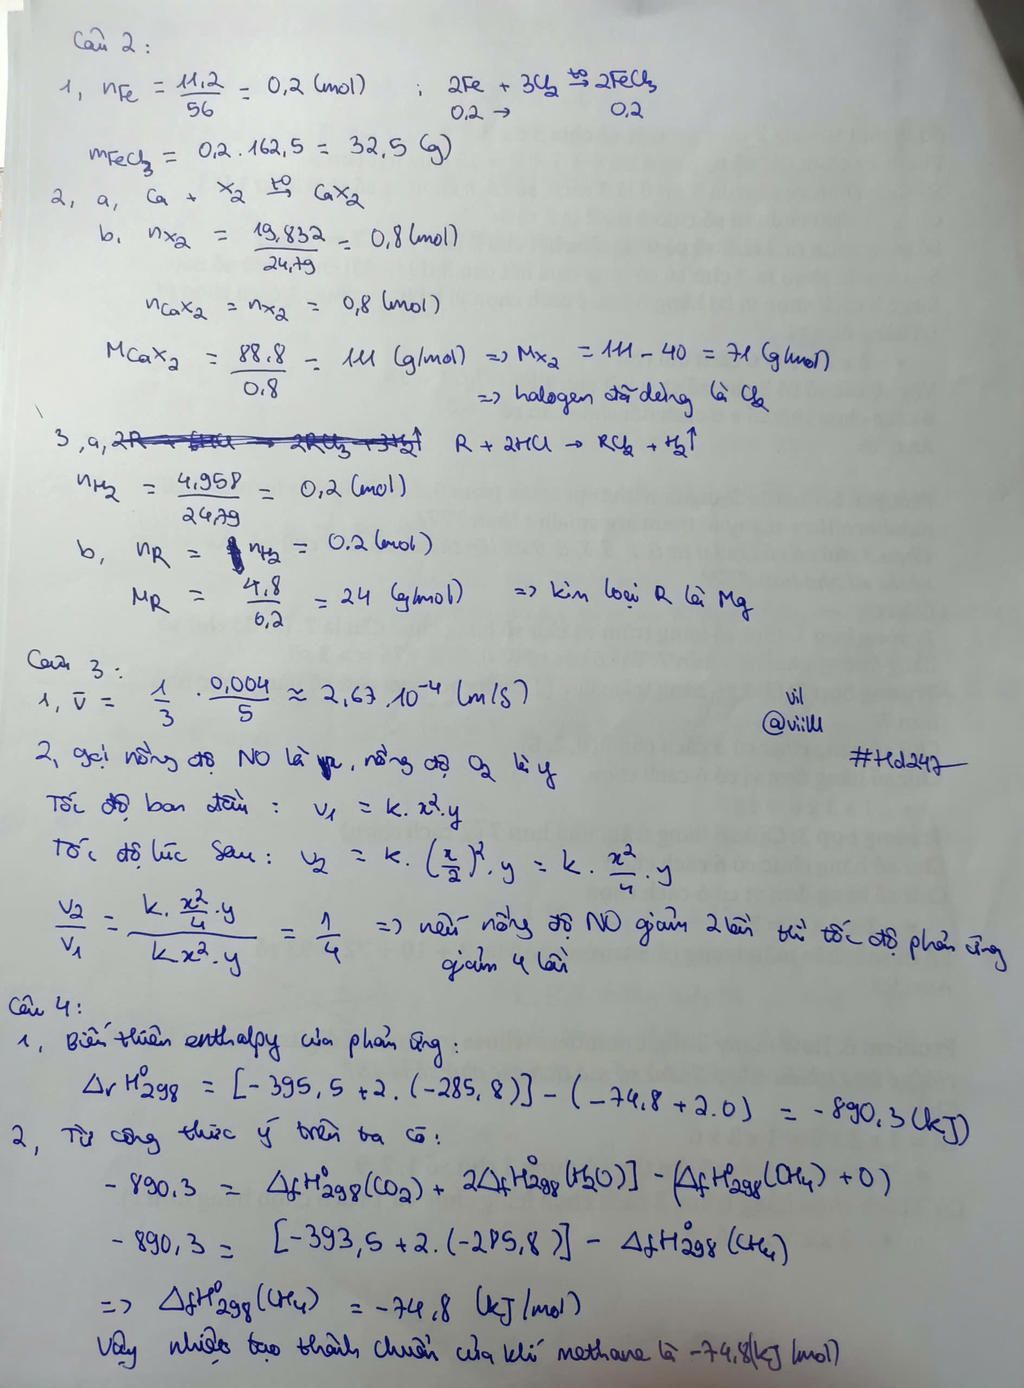 Câu 2:
1, nFe = 11,2/56 = 0,2 (mol) ; 2Fe + 3Cl₂ →(t⁰) 2FeCl₃
0,2 → 0,2
mFeCl₃ = 0,2 . 162,5 = 32,5 (g)
2, a, Ca + X₂ →(t⁰) CaX₂
b, nX₂ = 19,832/24,79 = 0,8 (mol)
nCaX₂ = nX₂ = 0,8 (mol)
MCaX₂ = 88.8/0.8 = 111 (g/mol) => MX₂ = 111 - 40 = 71 (g/mol)
=> halogen đã dùng là Cl₂
3, a, 2R + 6HCl → 2RCl₃ + 3H₂↑ R + 2HCl → RCl₂ + H₂↑
nH₂ = 4,958/24,79 = 0,2 (mol)
b, nR = nH₂ = 0.2 (mol)
MR = 4,8/0,2 = 24 (g/mol) => kim loại R là Mg
Câu 3:
1, v̄ = 1/3 . 0,004/5 ≈ 2,67.10⁻⁴ (m/s)
vil
@viilll
#Hd247
2, gọi nồng độ NO là x, nồng độ O₂ là y
Tốc độ ban đầu: v₁ = k.x².y
Tốc độ lúc sau: v₂ = k.(x/2)².y = k.x²/4.y
v₂/v₁ = (k.x²/4.y)/(k.x².y) = 1/4 => nếu nồng độ NO giảm 2 lần thì tốc độ phản ứng
giảm 4 lần
Câu 4:
1, Biến thiên enthalpy của phản ứng:
ΔrH⁰298 = [-395,5 + 2.(-285,8)] - (-74,8 + 2.0) = -890,3 (kJ)
2, Từ công thức ý trên ta có:
-890,3 = ΔfH⁰298(CO₂) + 2ΔfH⁰298(H₂O)] - (ΔfH⁰298(CH₄) + 0)
-890,3 = [-393,5 + 2.(-285,8)] - ΔfH⁰298(CH₄)
=> ΔfH⁰298(CH₄) = -74,8 (kJ/mol)
Vậy nhiệt tạo thành chuẩn của khí methane là -74,8(kJ/mol)